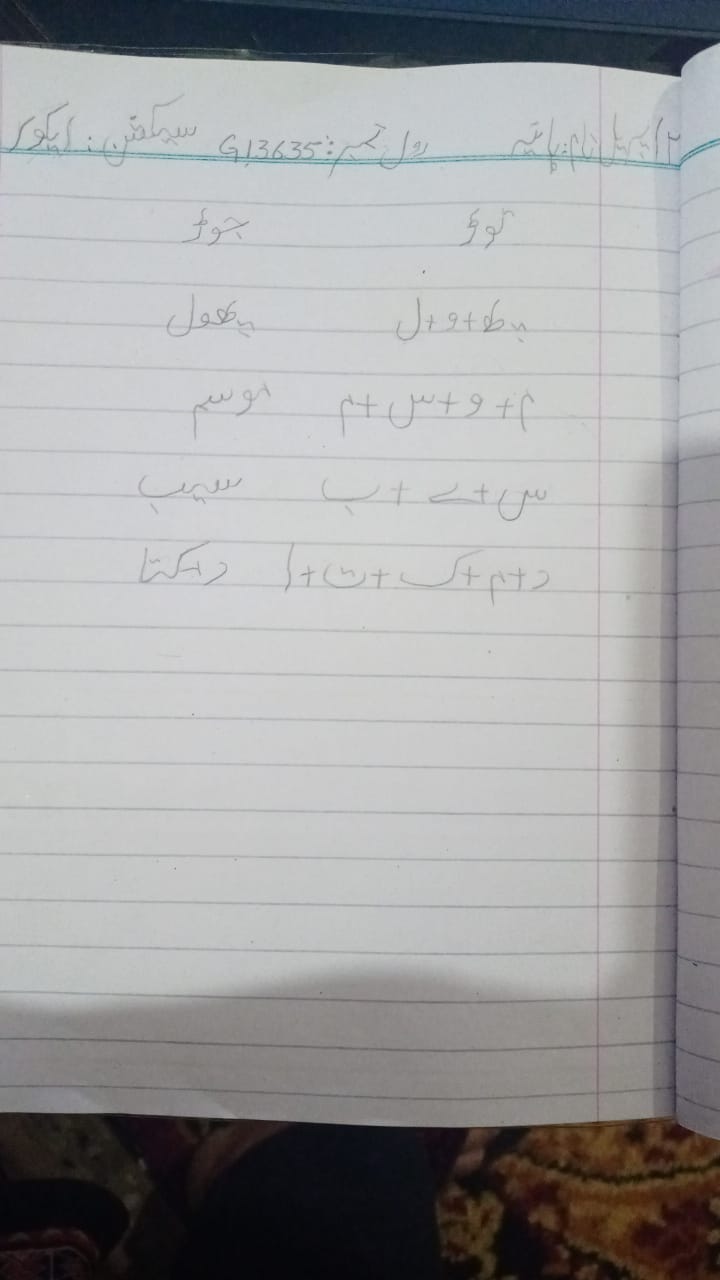 ۲ اپریل نام: ہانیہ رول نمبر: G13635 سیکشن:
توڑ جوڑ
پھ+و+ل پھول
م+و+س+م موسم
س+ے+ب سیب
د+م+ک+ت+ا دمکتا